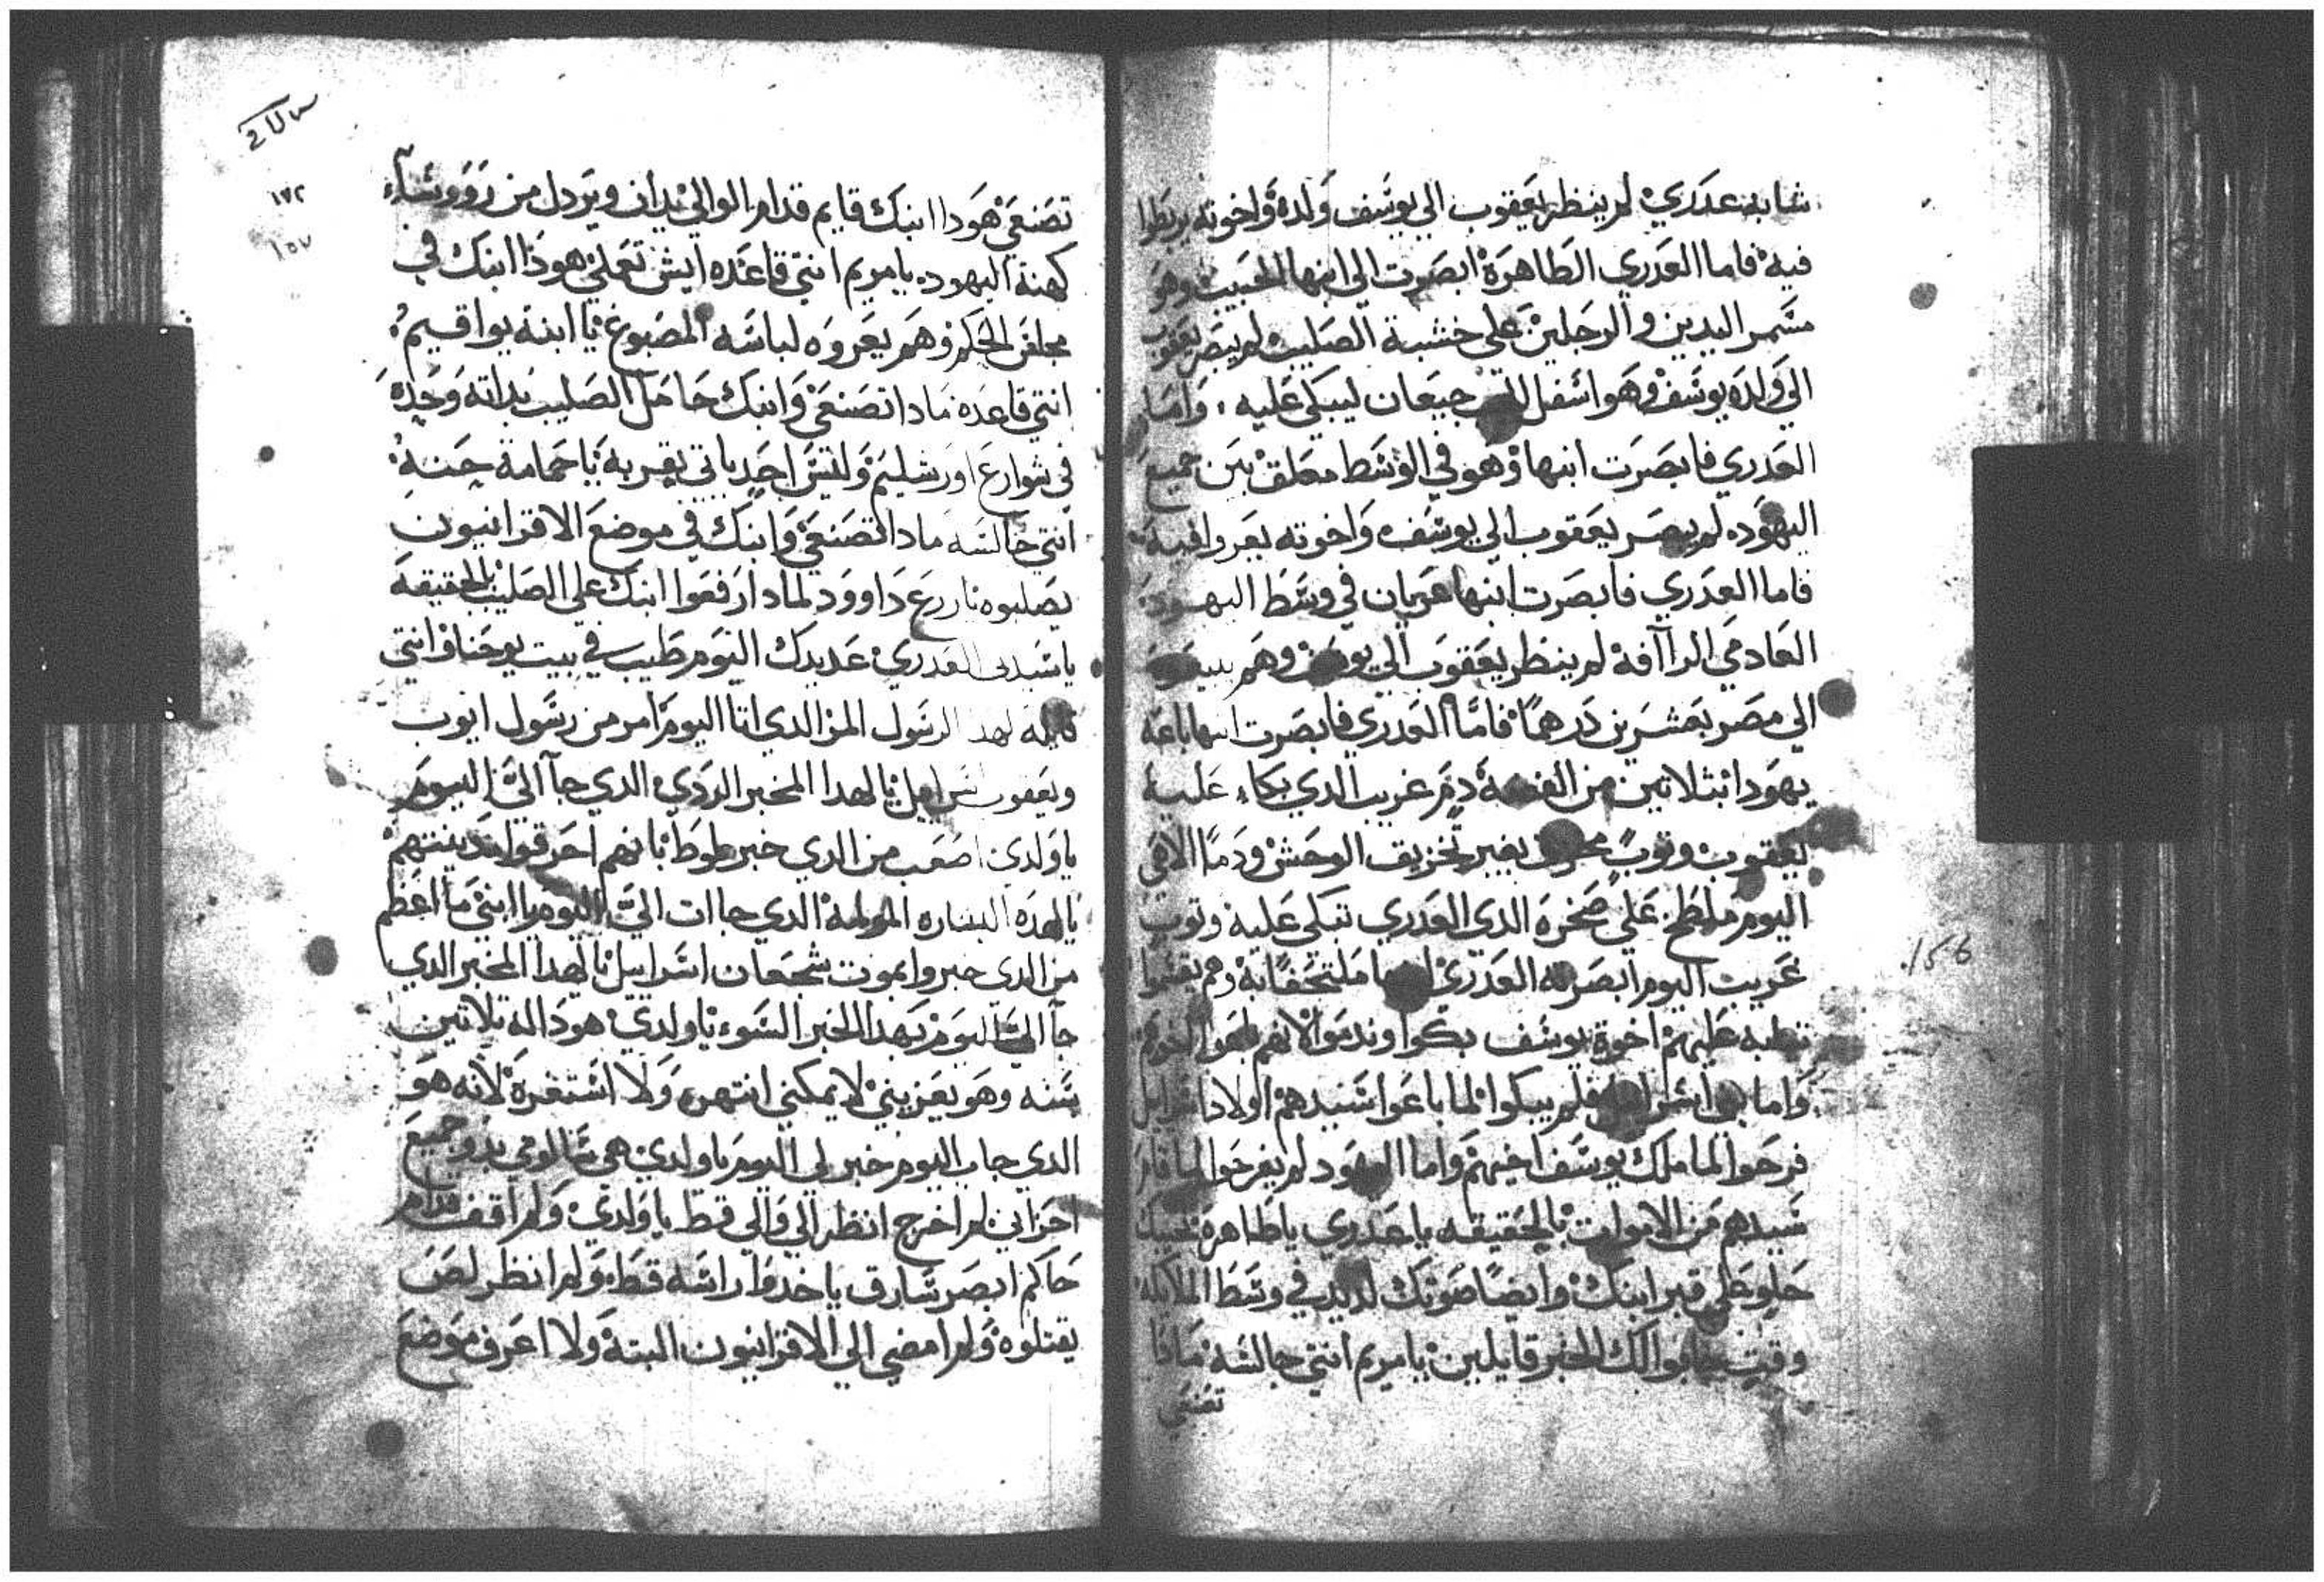 شابه عدري لم ينظر يعقوب الي يوسف ولده واخوته يربطوا
فيه فاما العدري الطاهرة ابصرت الي ابنها الحبيب وهو
مسمر اليدين والرجلين علي خشبة الصليب لم يبصر يعقوب
الي ولده يوسف وهو اسفل الجب جيعان ليبكي عليه وأما
العدري فابصرت ابنها وهو في الوسط معلق بين جميع
اليهود لم يبصر يعقوب الي يوسف واخوته يعروا فيه
فاما العدري فابصرت ابنها عريان في وسط اليهود
العادمي الراافة لم ينظر يعقوب الي يوسف وهم يبيعوه
الي مصر بعشرين درهما فاما العدري فابصرت ابنها باعه
يهودا بثلاتين من الفضة دم غريب الدي بكاء عليه
يعقوب وتوب بغير تخزيق الوحش ودما الاهي
اليوم ملطخ علي صخرة الدي العدري تبكي عليه وتوب
غريب اليوم ابصرته العدري ملتحفا به وهم يقسموا
عليهم اخوة يوسف بكوا وندموا لانهم
واما فلم يبكوا لما باعوا سيدهم اولاد اسرايل
فرحوا لما ملك يوسف اخيهم واما اليهود لم يفرحوا لما قام
سيدهم من الاموات بالحقيقه يا عدري يا طاهرة نحيبك
حلو علي قبر ابنك وايضا صوتك لديد في وسط الملايكة
وقت جابوا لك الخبر قايلين يا مريم انتي جالسه مادا
تصنعي
١٧٢
١٥٧
تصنعي هودا ابنك قايم قدام الوالي يدان ويردل من رووساء
كهنة اليهود يا مريم انتي قاعده ايش تعملي هودا ابنك في
مجلس الحكم وهم يعروه لباسه المصبوغ يا ابنة يواقيم
انتي قاعده مادا تصنعي وابنك حامل الصليب بداته وحده
في شوارع اورشليم وليس احد ياتي يقربه يا حمامة حسنه
انتي جالسه مادا تصنعي وابنك في موضع الاقرانيون
يصلبوه يا زرع داوود لمادا رفعوا ابنك علي الصليب بالحقيقه
يا ستي العدري عديدك اليوم طيب في بيت يوحنا وانتي
قايله لهدا الرسول المر الدي اتا اليوم امر من رسول ايوب
ويعقوب اسرايل يا لهدا المخبر الردي الدي جاا الي اليوم
يا ولدي اصعب من الدي خبر طوط بانهم احرقوا مدينتهم
يا لهده البشاره المولمه الدي جاات الي اليوم يا ابني ما اعظم
من الدي خبروا بموت شجعان اسراييل يا لهدا المخبر الدي
جاا الي اليوم بهدا الخبر السوء يا ولدي هودا له تلاتين
سنه وهو يعزيني لا يمكني انتهره ولا استغره لانه هو
الدي جاب اليوم خبر لي اليوم يا ولدي هي بدو جميع
احزاني لم اخرج انظر الي والي قط يا ولدي ولم اقف قدام
حاكم ابصر سارق ياخدوا راسه قط ولم انظر لص
يقتلوه ولم امضي الي الاقرانيون البتة ولا اعرف موضع
156